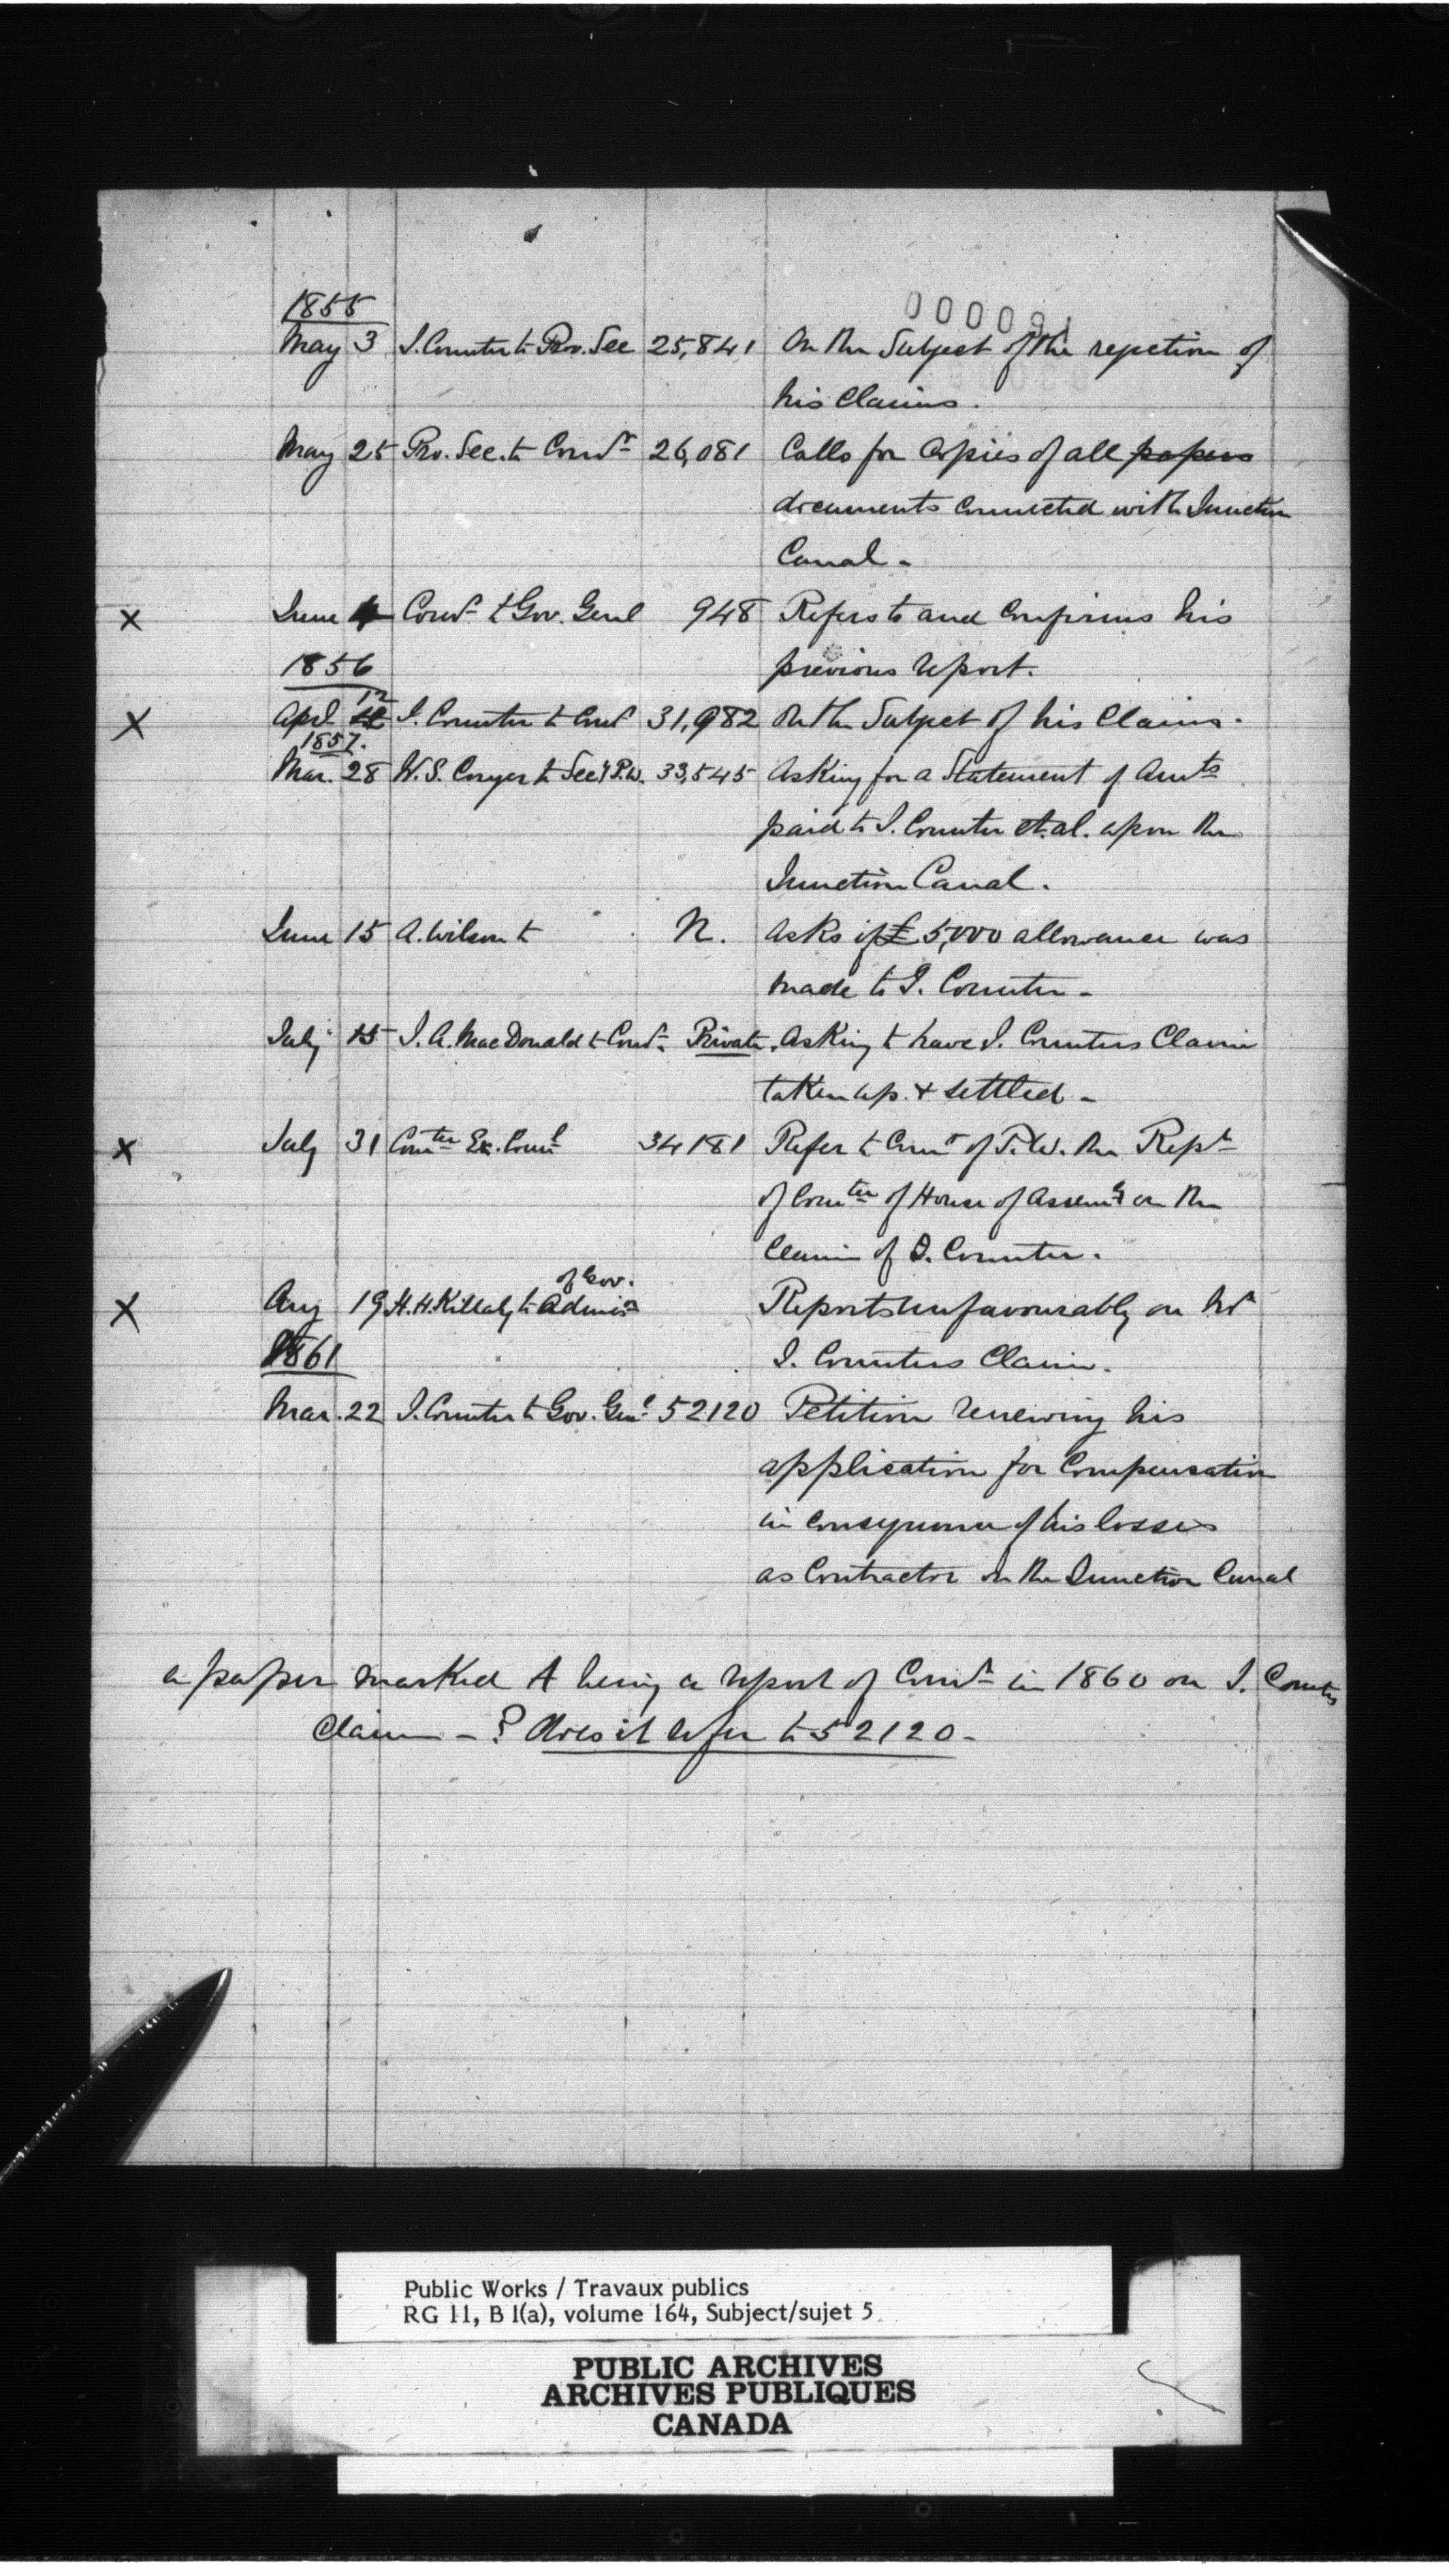 1855
000091
May 3 J. Counter to Prov. Sec 25,841 On the Subject of the rejection of
his Claims.
May 25 Pro. Sec. to Comr 26,081 Calls for Copies of all papers
documents connected with Junction
Canal -
x June 4 Comr to Gov. Genl 948 Refers to and confirms his
1856
previous report.
12
x Apl. J. Counter to Comr 31,982 On the Subject of his Claims.
1857.
Mar. 28 W. S. Conger to Secy P.W. 33,545 Asking for a Statement of Amts
paid to J. Counter et. al. upon the
Junction Canal.
June 15 A. Wilson to N. Asks if £5,000 allowance was
made to J. Counter -
July 15 J. A. MacDonald to Comr. Private. Asking to have J. Counters Claim
taken up. & settled -
x July 31 Comtee Ex. Councl 34181 Refer to Comr of P.W. the Rept
of Comtee of House of Assemy on the
Claim of J. Counter.
of Gov.
x Aug 19 H. H. Killaly to Admin Reports unfavourably on Mr
1861
J. Counters Claim.
Mar. 22 J. Counter to Gov. Genl 52120 Petition renewing his
application for Compensation
in consequence of his losses
as Contractor on the Junction Canal
a paper marked A being a report of Comr in 1860 on J. Counters
Claim - ? Does it refer to 52120 -
Public Works / Travaux publics
RG 11, B 1(a), volume 164, Subject/sujet 5
PUBLIC ARCHIVES
ARCHIVES PUBLIQUES
CANADA